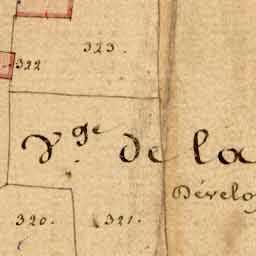 323.
322
V.ge de la
Dévelo
320.
321.